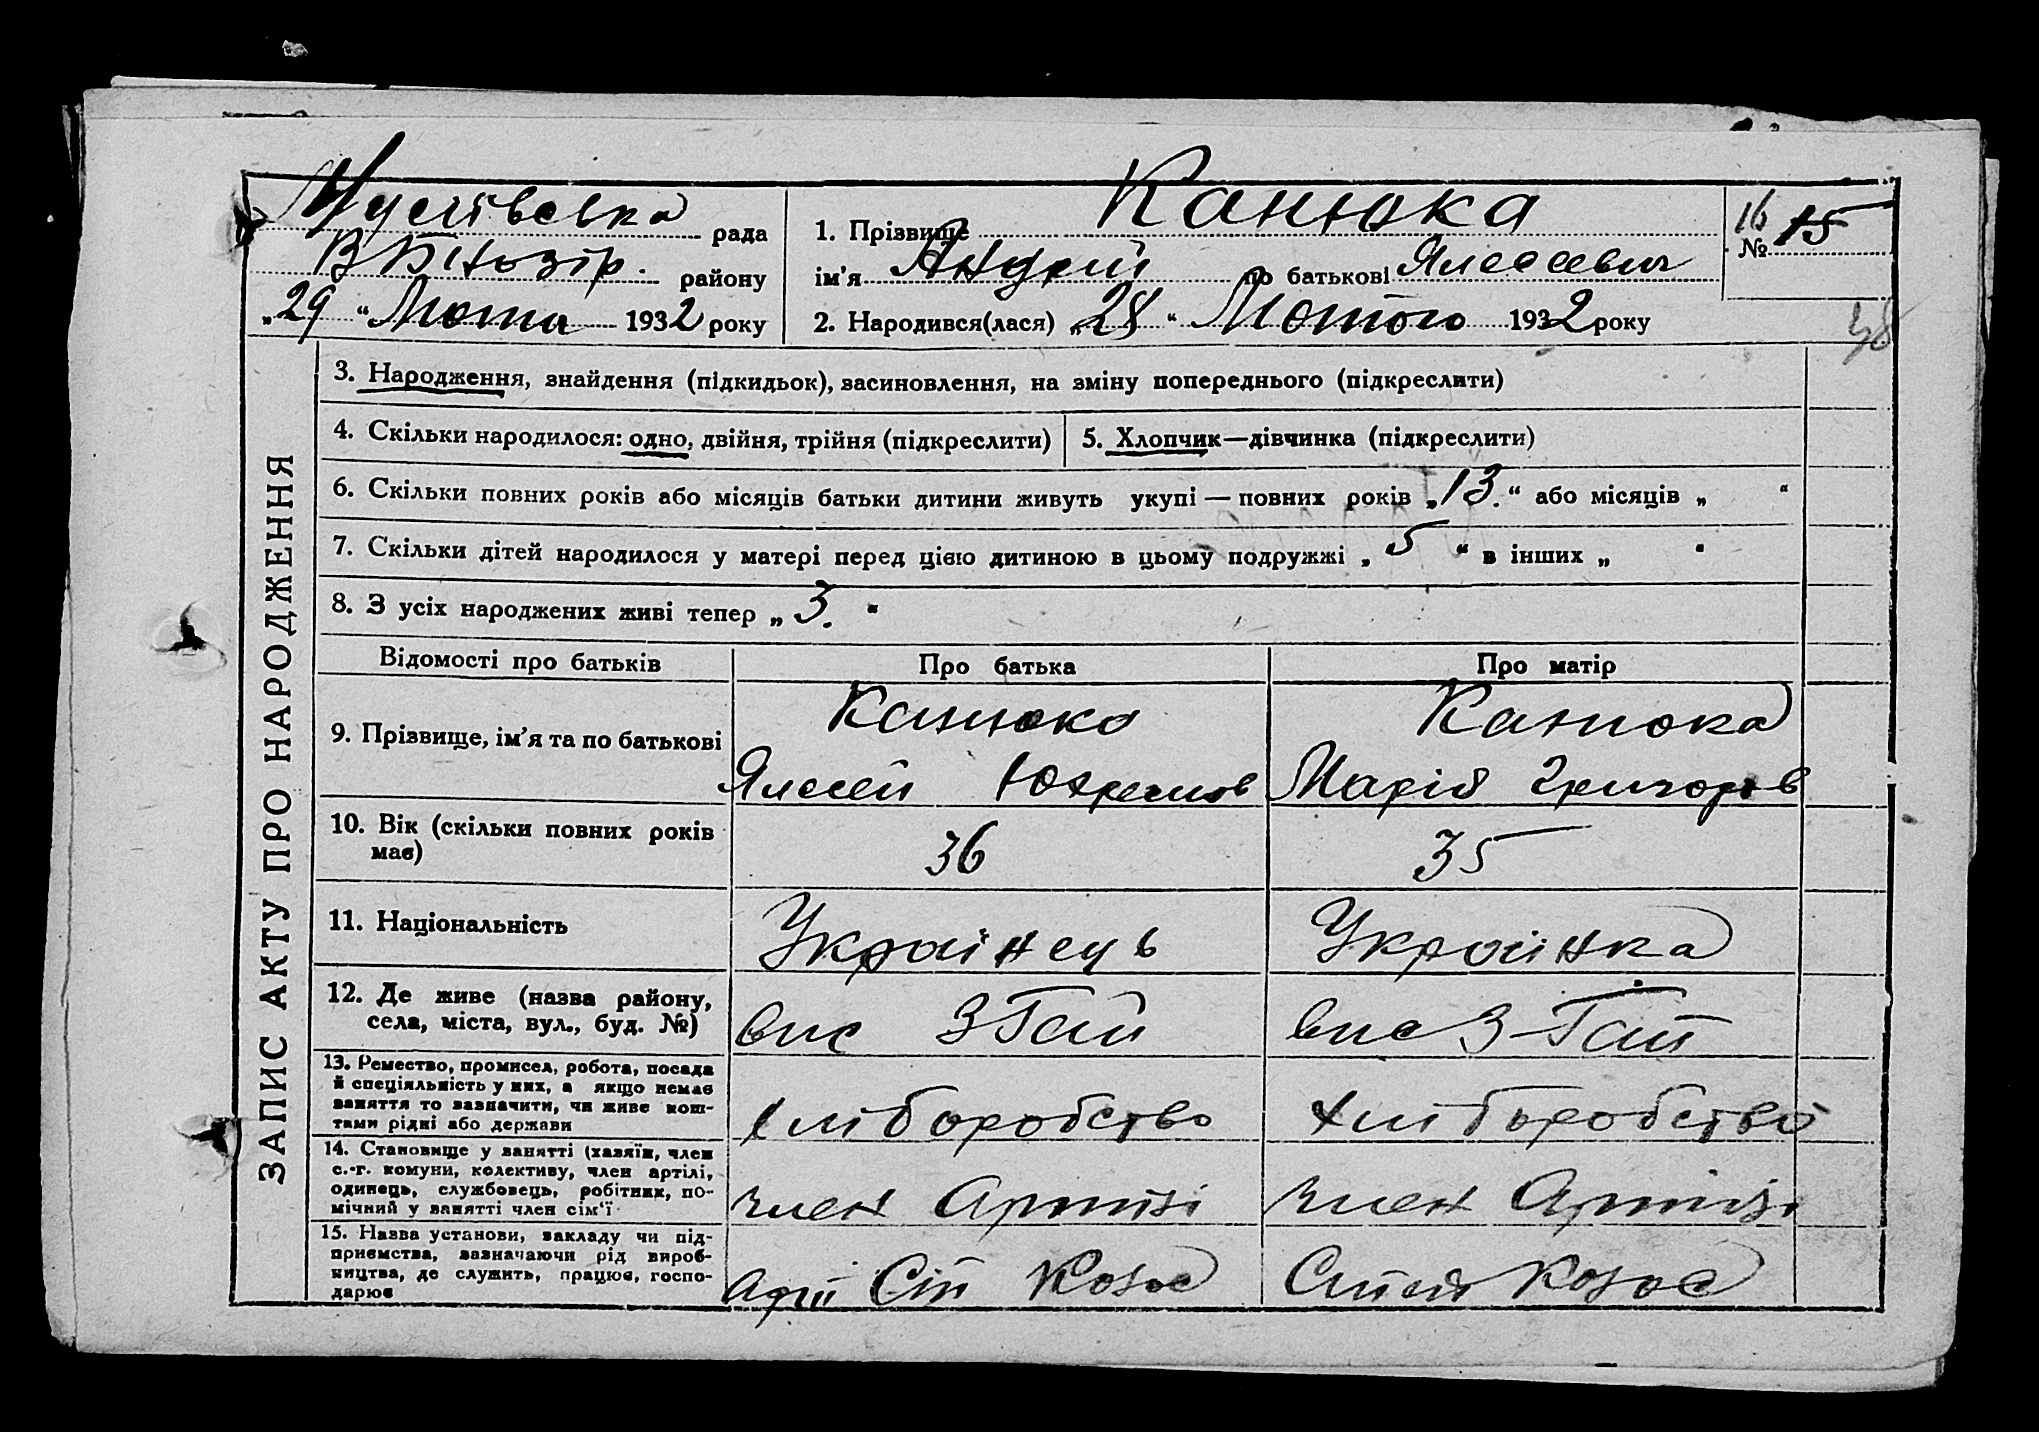 Мусіївська рада
В Бінозір. району
„29 “ Люти 1932 року
1. Прізвище Канюка
ім'я Андрій по батькові Ялесеевич
2. Народився(лася) „28 “ Лютого 1932 року
16
№ 15
38
ЗАПИС АКТУ ПРО НАРОДЖЕННЯ
3. Народження, знайдення (підкидьок), засиновлення, на зміну попереднього (підкреслити)
4. Скільки народилося: одно, двійня, трійня (підкреслити)
5. Хлопчик—дівчинка (підкреслити)
6. Скільки повних років або місяців батьки дитини живуть укупі — повних років „13.“ або місяців „ “
7. Скільки дітей народилося у матері перед цією дитиною в цьому подружжі „ 5 “ в інших „ “
8. З усіх народжених живі тепер „ 3. “
Відомості про батьків Про батька Про матір
9. Прізвище, ім'я та по батькові
Канюка
Ялесей Юхремов
Канюка
Марія Григоров
10. Вік (скільки повних років
має)
36
35
11. Національність
Українець
Українка
12. Де живе (назва району,
села, міста, вул., буд. №)
вис З Гай
вис З-Гай
13. Ремество, промисел, робота, посада
й спеціяльність у них, а якщо немає
заняття то зазначити, чи живе кош-
тами рідні або держави
хліборобство
хліборобство
14. Становище у занятті (хазяїн, член
с.-г. комуни, колективу, член артілі,
одинець, службовець, робітник, по-
мічний у занятті член сім'ї
член Артілі
член Артілі
15. Назва установи, закладу чи під-
приємства, зазначаючи рід вироб-
ництва, де служить, працює, госпо-
дарює